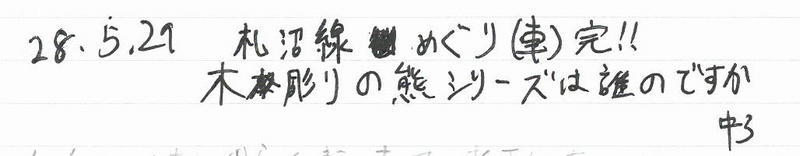 28.5.29 札沼線めぐり(車)完!!
木彫りの熊シリーズは誰のですか
中3